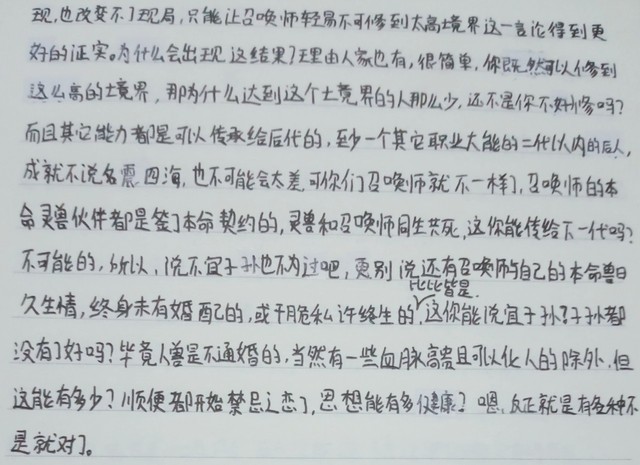 现,也改变不了现局,只能让召唤师轻易不可修到太高境界这一言论得到更
好的证实。为什么会出现这结果?理由人家也有,很简单,你既然可以修到
这么高的境界,那为什么达到这个境界的人那么少,还不是你不好修吗?
而且其它能力都是可以传承给后代的,至少一个其它职业大能的二代以内的后人,
成就不说名震四海,也不可能会太差,可你们召唤师就不一样了,召唤师的本
命灵兽伙伴都是签了本命契约的,灵兽和召唤师同生共死,这你能传给下一代吗?
不可能的,所以,说不宜子孙也不为过吧,更别说还有召唤师与自己的本命兽日
久生情,终身未有婚配的,或干脆私许终生的比比皆是,这你能说宜子孙?子孙都
没有了好吗?毕竟人兽是不通婚的,当然有一些血脉高贵且可以化人的除外,但
这能有多少?顺便都开始禁忌之恋了,思想能有多健康?嗯,反正就是有各种不
是就对了。